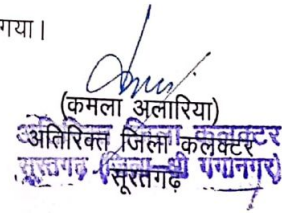 गया।
(कमला अलारिया)
अतिरिक्त जिला कलक्टर
अतिरिक्त जिला कलक्टर
सूरतगढ़ (जिला-श्री गंगानगर)
सूरतगढ़